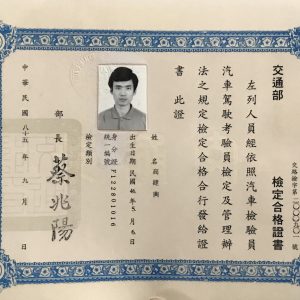 交通部
檢定合格證書
左列人員經依照汽車檢驗員
汽車駕駛考驗員檢定及管理辦
法之規定檢定合格合行發給證
書 此證
姓名
出生日期 民國
身分證
統一編號 F122801016
檢定類別
部長 蔡兆陽
中華民國八十五年九月 日